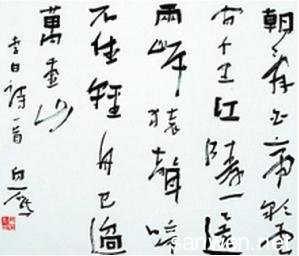 朝辭白帝彩雲
間千里江陵一日還
兩岸猿聲啼
不住輕舟已過
萬重山
李白詩一首
sanwen.net